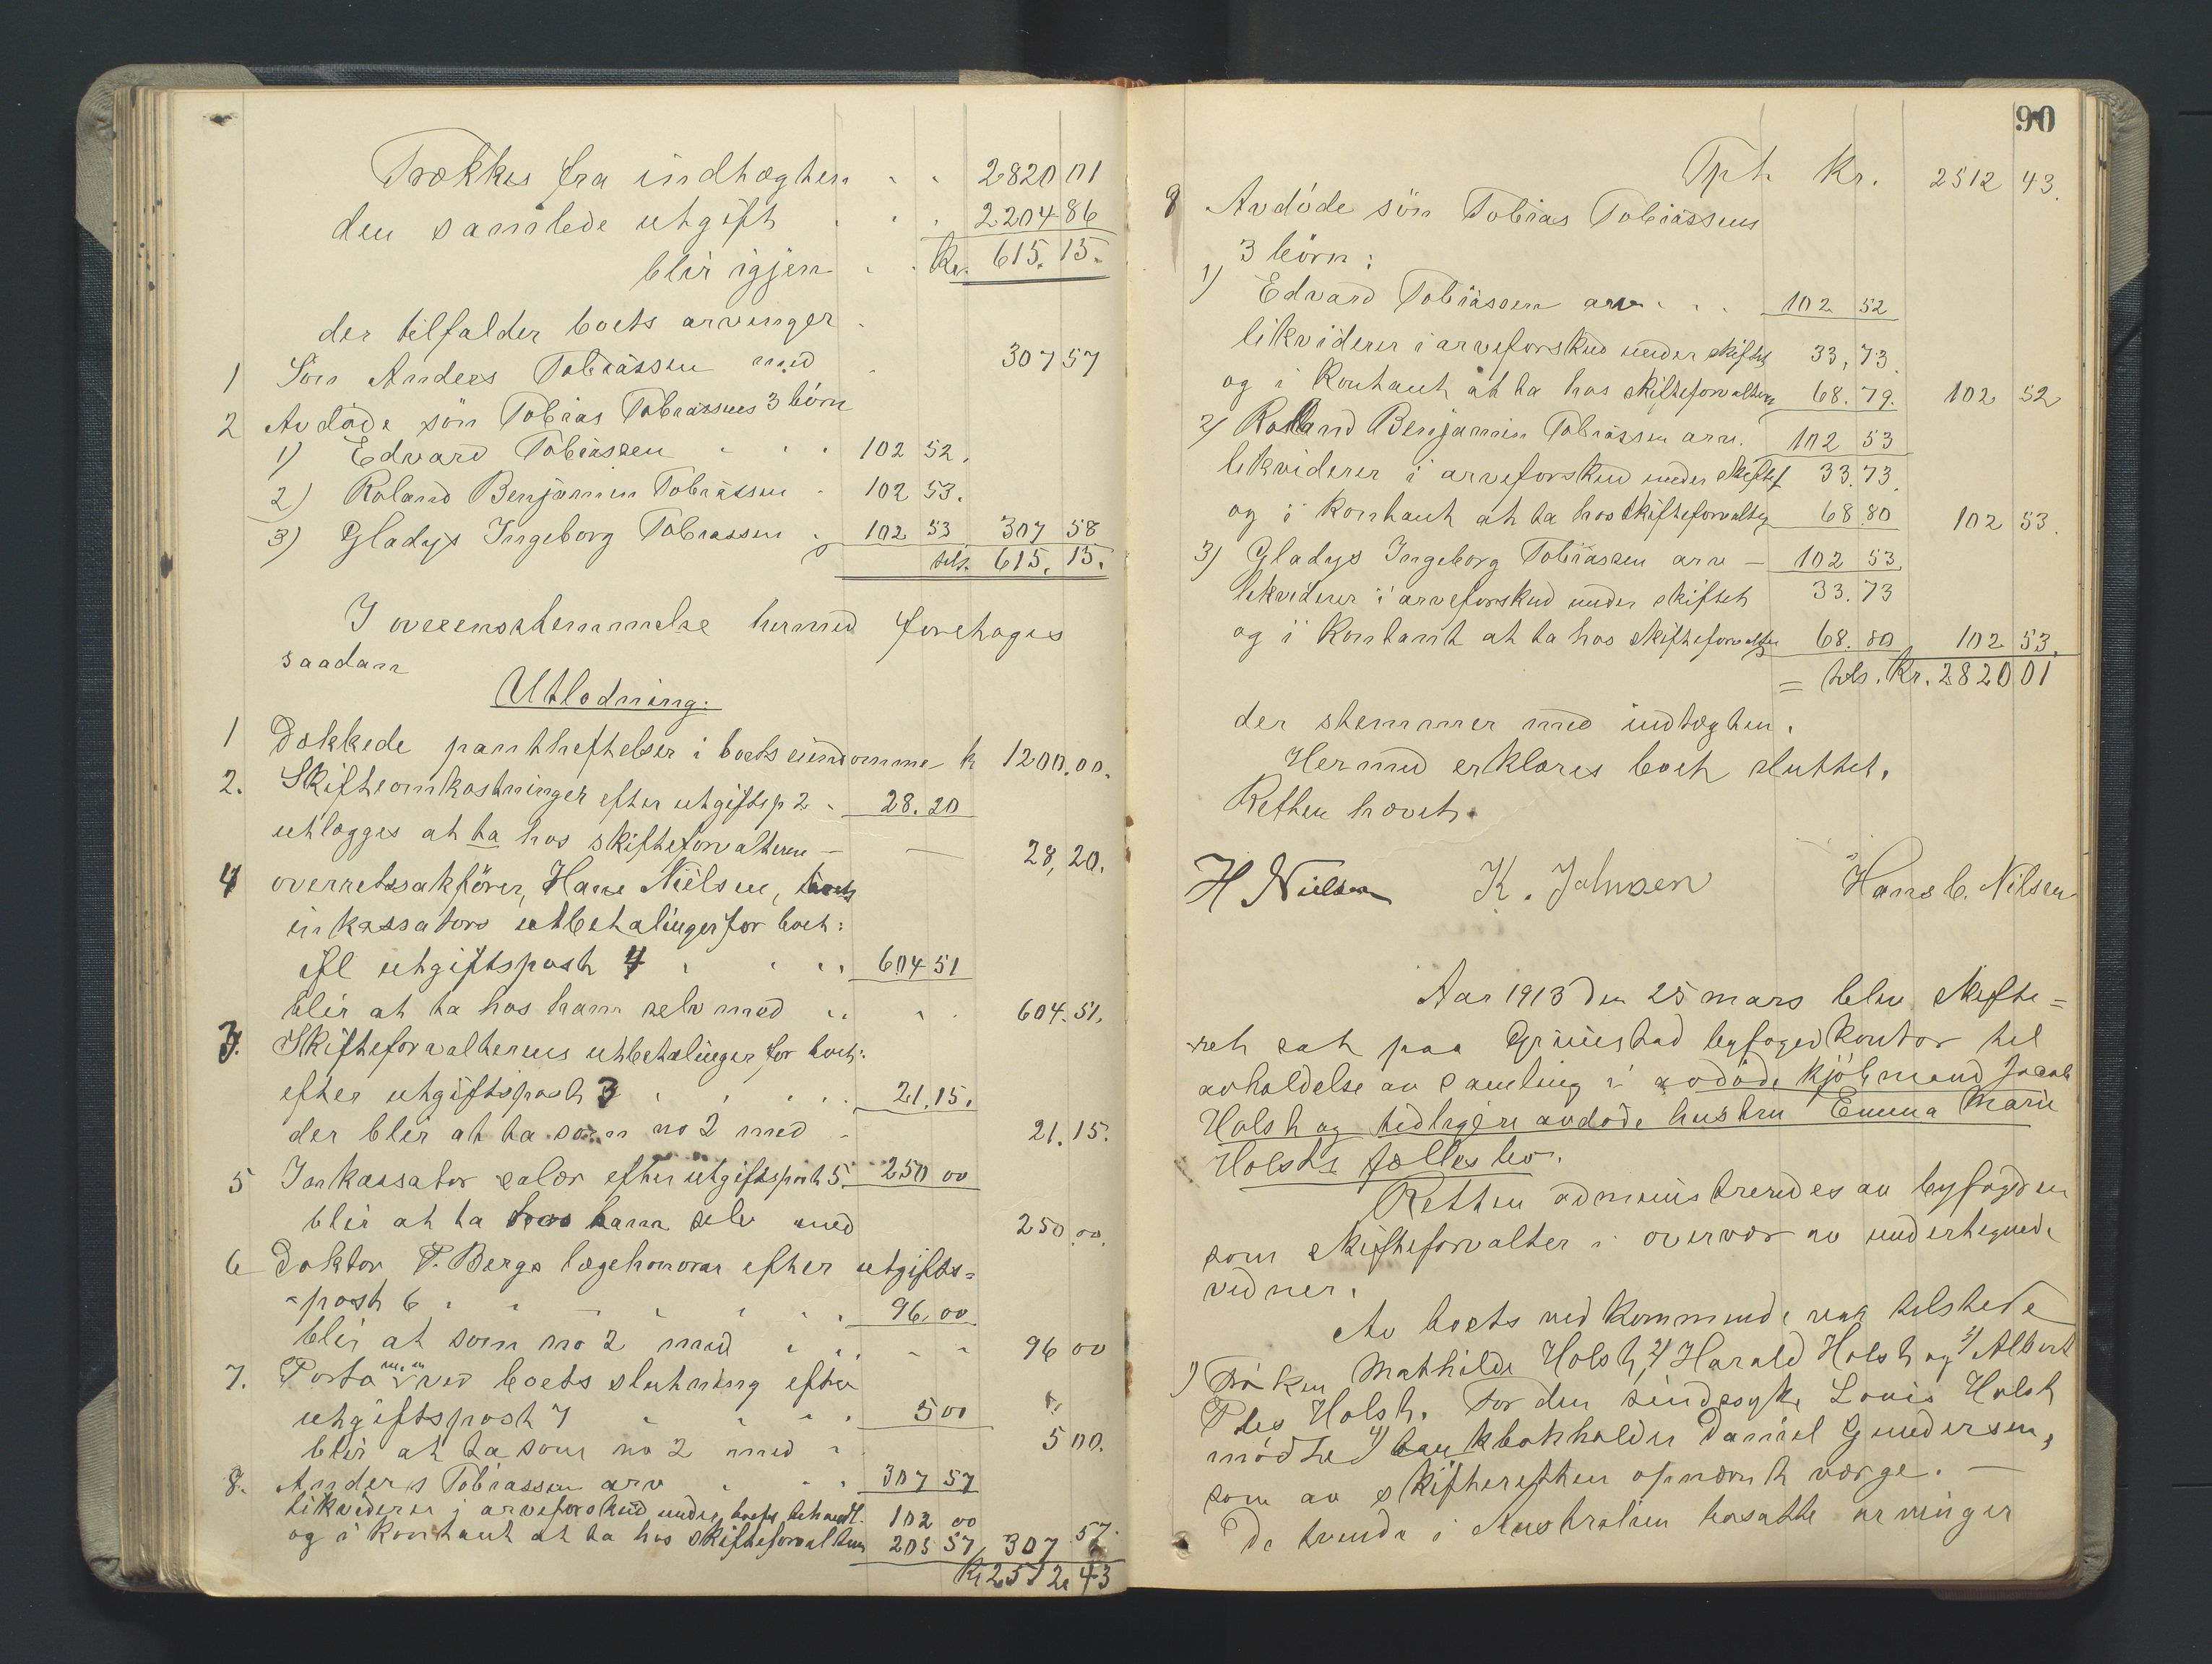 Trækkes fra indtægten 2820 01
den samlede utgift 2204 86
blir igjen Kr. 615. 15.
der tilfalder boets arvinger
1 Søn Anders Tobiassen med 307 57
2 Avdøde søn Tobias Tobiassens 3 børn
1) Edvard Tobiassen 102 52.
2) Roland Benjamin Tobiassen 102 53.
3) Gladys Ingeborg Tobiassen 102 53 307 58
tils. 615. 15.
I overensstemmelse hermed foretages
saadan
Utlodning.
1 Dækkede pantheftelser i boets eiendomme k 1200.00.
2. Skifteomkostninger efter utgiftsp 2 28.20
utlægges at ta hos skifteforvalteren 28,20.
4 overretssakfører, Hans Nielsen, boets
inkassators utbetalinger for boet:
ifl utgiftspost 4 604 51
blir at ta hos ham selv med 604.51.
3. Skifteforvalterens utbetalinger for boet:
efter utgiftspost 3 21.15.
der blir at ta som no 2 med 21.15.
5 Inkassator salær efter utgiftspost 5. 250 00
blir at ta hos ham selv med 250.00.
6 Doktor P. Bergs lægehonorar efter utgifts=
=post 6 96.00
blir at som no 2 med 96 00
7. Porto m.m ved boets slutning efter
utgiftspost 7 5 00
blir at ta som no 2 med 5 00.
8. Anders Tobiassen arv 307 57
likviderer i arveforskud under boets behandl. 102 00
og i kontant at ta hos skifteforvalteren 205 57 307 57.
Kr 2512. 43
90
Tpt. Kr. 2512 43.
9 Avdøde søn Tobias Tobiassens
3 børn:
1) Edvard Tobiassen arv 102 52
likviderer i arveforskud under skiftet 33,73.
og i Kontant at ta hos skifteforvalteren 68.79. 102 52
2) Rolland Benjamin Tobiassen arv. 102 53
likviderer i arveforskud under skiftet 33.73.
og i kontant at ta hos skifteforvalter 68 80 102 53.
3) Gladys Ingeborg Tobiassen arv – 102 53.
likviderer i arveforskud under skiftet 33.73
og i Kontant at ta hos skifteforvalter 68.80 102 53.
= tils. Kr. 2820 01
der stemmer med indtægten.
Hermed erklæres boet sluttet.
Retten hævet.
H Nielsen K. Johnsen Hans C. Nilsen
Aar 1913 den 25 mars blev skifte=
=ret sat paa Grimstad byfogedkontor til
avholdelse av samling i avdøde kjøbmand Jacob
Holst og tidligere avdøde hustru Emma Marie
Holsts fælles bo.
Retten administreredes av byfogden
som skifteforvalter i overvær av undertegnede
vidner.
Av boets vedkommende var tilstede
1) Frøken Mathilde Holst, 2) Harald Holst og 3) Albert
Holst. For den sindssyke Louis Holst
mødte 4) bankbokholder Daniel Gundersen,
som av skifteretten opnævnt værge. –
De tvende i Australien bosatte arvinger